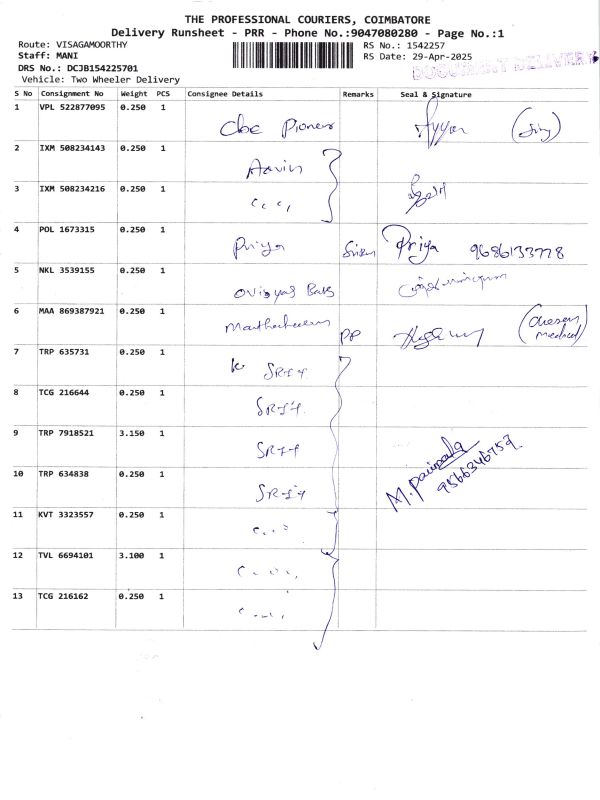 THE PROFESSIONAL COURIERS, COIMBATORE
Delivery Runsheet - PRR - Phone No.:9047080280 - Page No.:1
Route: VISAGAMOORTHY RS No.: 1542257
Staff: MANI RS Date: 29-Apr-2025
DRS No.: DCJB154225701 DOCUMENT DELIVERY
Vehicle: Two Wheeler Delivery
S No Consignment No Weight PCS Consignee Details Remarks Seal & Signature
1 VPL 522877095 0.250 1
Cbe Pioneer Ayyar
2 IXM 508234143 0.250 1
Aavin
3 IXM 508234216 0.250 1
4 POL 1673315 0.250 1
Priya Priya 9686133778
5 NKL 3539155 0.250 1
6 MAA 869387921 0.250 1
PP
7 TRP 635731 0.250 1
8 TCG 216644 0.250 1
9 TRP 7918521 3.150 1
10 TRP 634838 0.250 1
M. Parimala
9566346759
11 KVT 3323557 0.250 1
12 TVL 6694101 3.100 1
13 TCG 216162 0.250 1